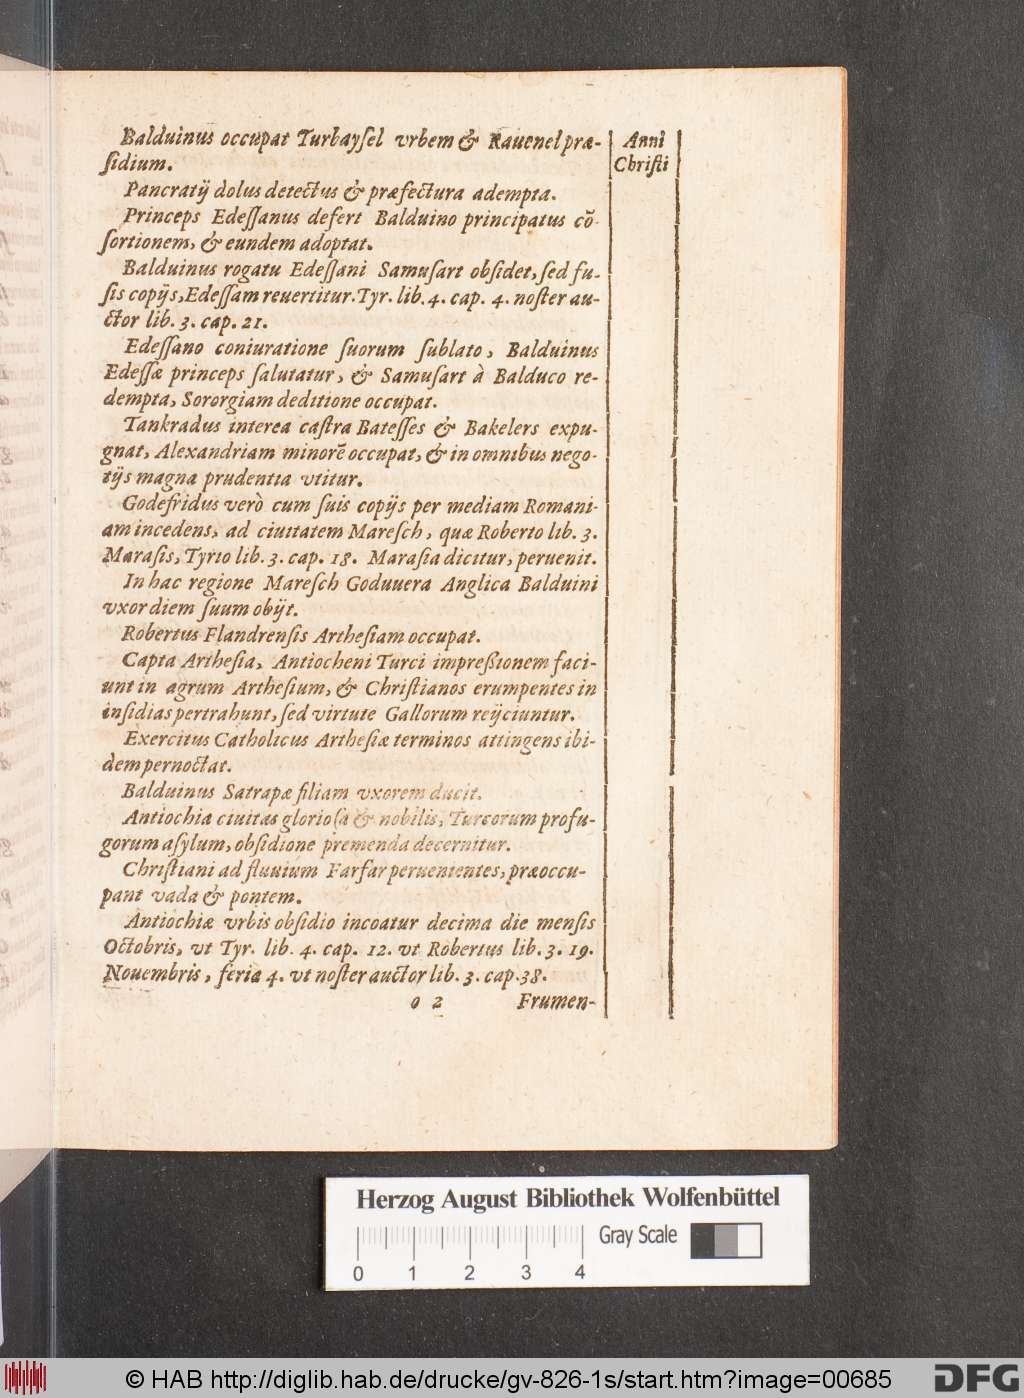 Balduinus occupat Turbayſel vrbem & Rauenel præ-
ſidium.
Pancratij dolus detectus & præfectura adempta.
Princeps Edeſſanus defert Balduino principatus cõ-
ſortionem, & eundem adoptat.
Balduinus rogatu Edeſſani Samuſart obſidet, ſed fu-
ſis copijs, Edeſſam reuertitur. Tyr. lib. 4. cap. 4. noſter au-
ctor lib. 3. cap. 21.
Edeſſano coniuratione ſuorum ſublato, Balduinus
Edeſſæ princeps ſalutatur, & Samuſart à Balduco re-
dempta, Sororgiam deditione occupat.
Tankradus interea caſtra Bateſſes & Bakelers expu-
gnat, Alexandriam minorẽ occupat, & in omnibus nego-
tijs magna prudentia vtitur.
Godefridus verò cum ſuis copijs per mediam Romani-
am incedens, ad ciuitatem Mareſch, quæ Roberto lib. 3.
Maraſis, Tyrio lib. 3. cap. 18. Maraſia dicitur, peruenit.
In hac regione Mareſch Goduuera Anglica Balduini
vxor diem ſuum obijt.
Robertus Flandrenſis Artheſiam occupat.
Capta Artheſia, Antiocheni Turci impreßionem faci-
unt in agrum Artheſium, & Chriſtianos erumpentes in
inſidias pertrahunt, ſed virtute Gallorum reijciuntur.
Exercitus Catholicus Artheſiæ terminos attingens ibi-
dem pernoctat.
Balduinus Satrapæ filiam vxorem ducit.
Antiochia ciuitas glorioſa & nobilis, Turcorum profu-
gorum aſylum, obſidione premenda decernitur.
Chriſtiani ad fluuium Farfar peruenientes, præoccu-
pant vada & pontem.
Antiochiæ vrbis obſidio incoatur decima die menſis
Octobris, vt Tyr. lib. 4. cap. 12. vt Robertus lib. 3. 19.
Nouembris, feria 4. vt noſter auctor lib. 3. cap. 38.
o 2 Frumen-
Anni
Chriſti
Herzog August Bibliothek Wolfenbüttel
0 1 2 3 4
Gray Scale
© HAB http://diglib.hab.de/drucke/gv-826-1s/start.htm?image=00685
DFG